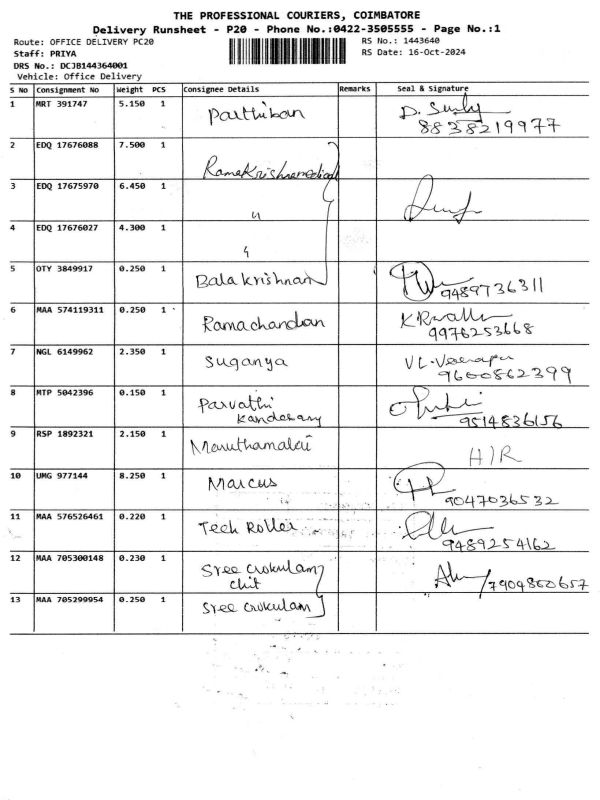 THE PROFESSIONAL COURIERS, COIMBATORE
Delivery Runsheet - P20 - Phone No.:0422-3505555 - Page No.:1
Route: OFFICE DELIVERY PC20 RS No.: 1443640
Staff: PRIYA RS Date: 16-Oct-2024
DRS No.: DCJB144364001
Vehicle: Office Delivery
S No Consignment No Weight PCS Consignee Details Remarks Seal & Signature
1 MRT 391747 5.150 1 Parthiban D.
8838219977
2 EDQ 17676088 7.500 1
Ramakrishnamedical
3 EDQ 17675970 6.450 1
"
4 EDQ 17676027 4.300 1
"
5 OTY 3849917 0.250 1 Balakrishnan 9489736311
6 MAA 574119311 0.250 1 Ramachandran
9976253668
7 NGL 6149962 2.350 1 Suganya
9600862399
8 MTP 5042396 0.150 1 Parvathi
Kandasamy 9514836156
9 RSP 1892321 2.150 1
H/R
10 UMG 977144 8.250 1 Marcus
9047036532
11 MAA 576526461 0.220 1 Teck Roller
9489254162
12 MAA 705300148 0.230 1 Sree Gokulam
chit 7904860657
13 MAA 705299954 0.250 1 Sree Gokulam